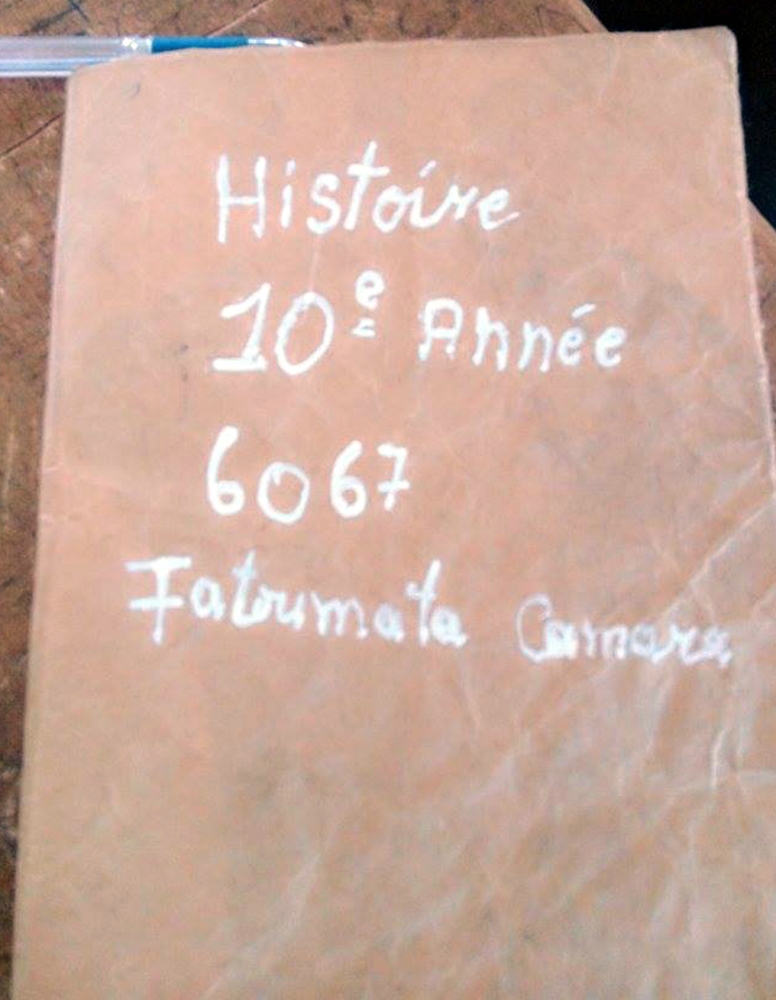 Histoire
10e Année
6067
Fatoumata Camara